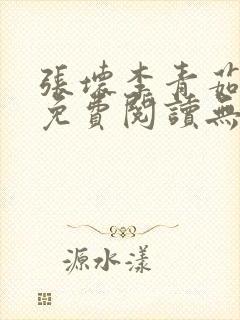 張壞李青茹
免費閱讀無
源水漾